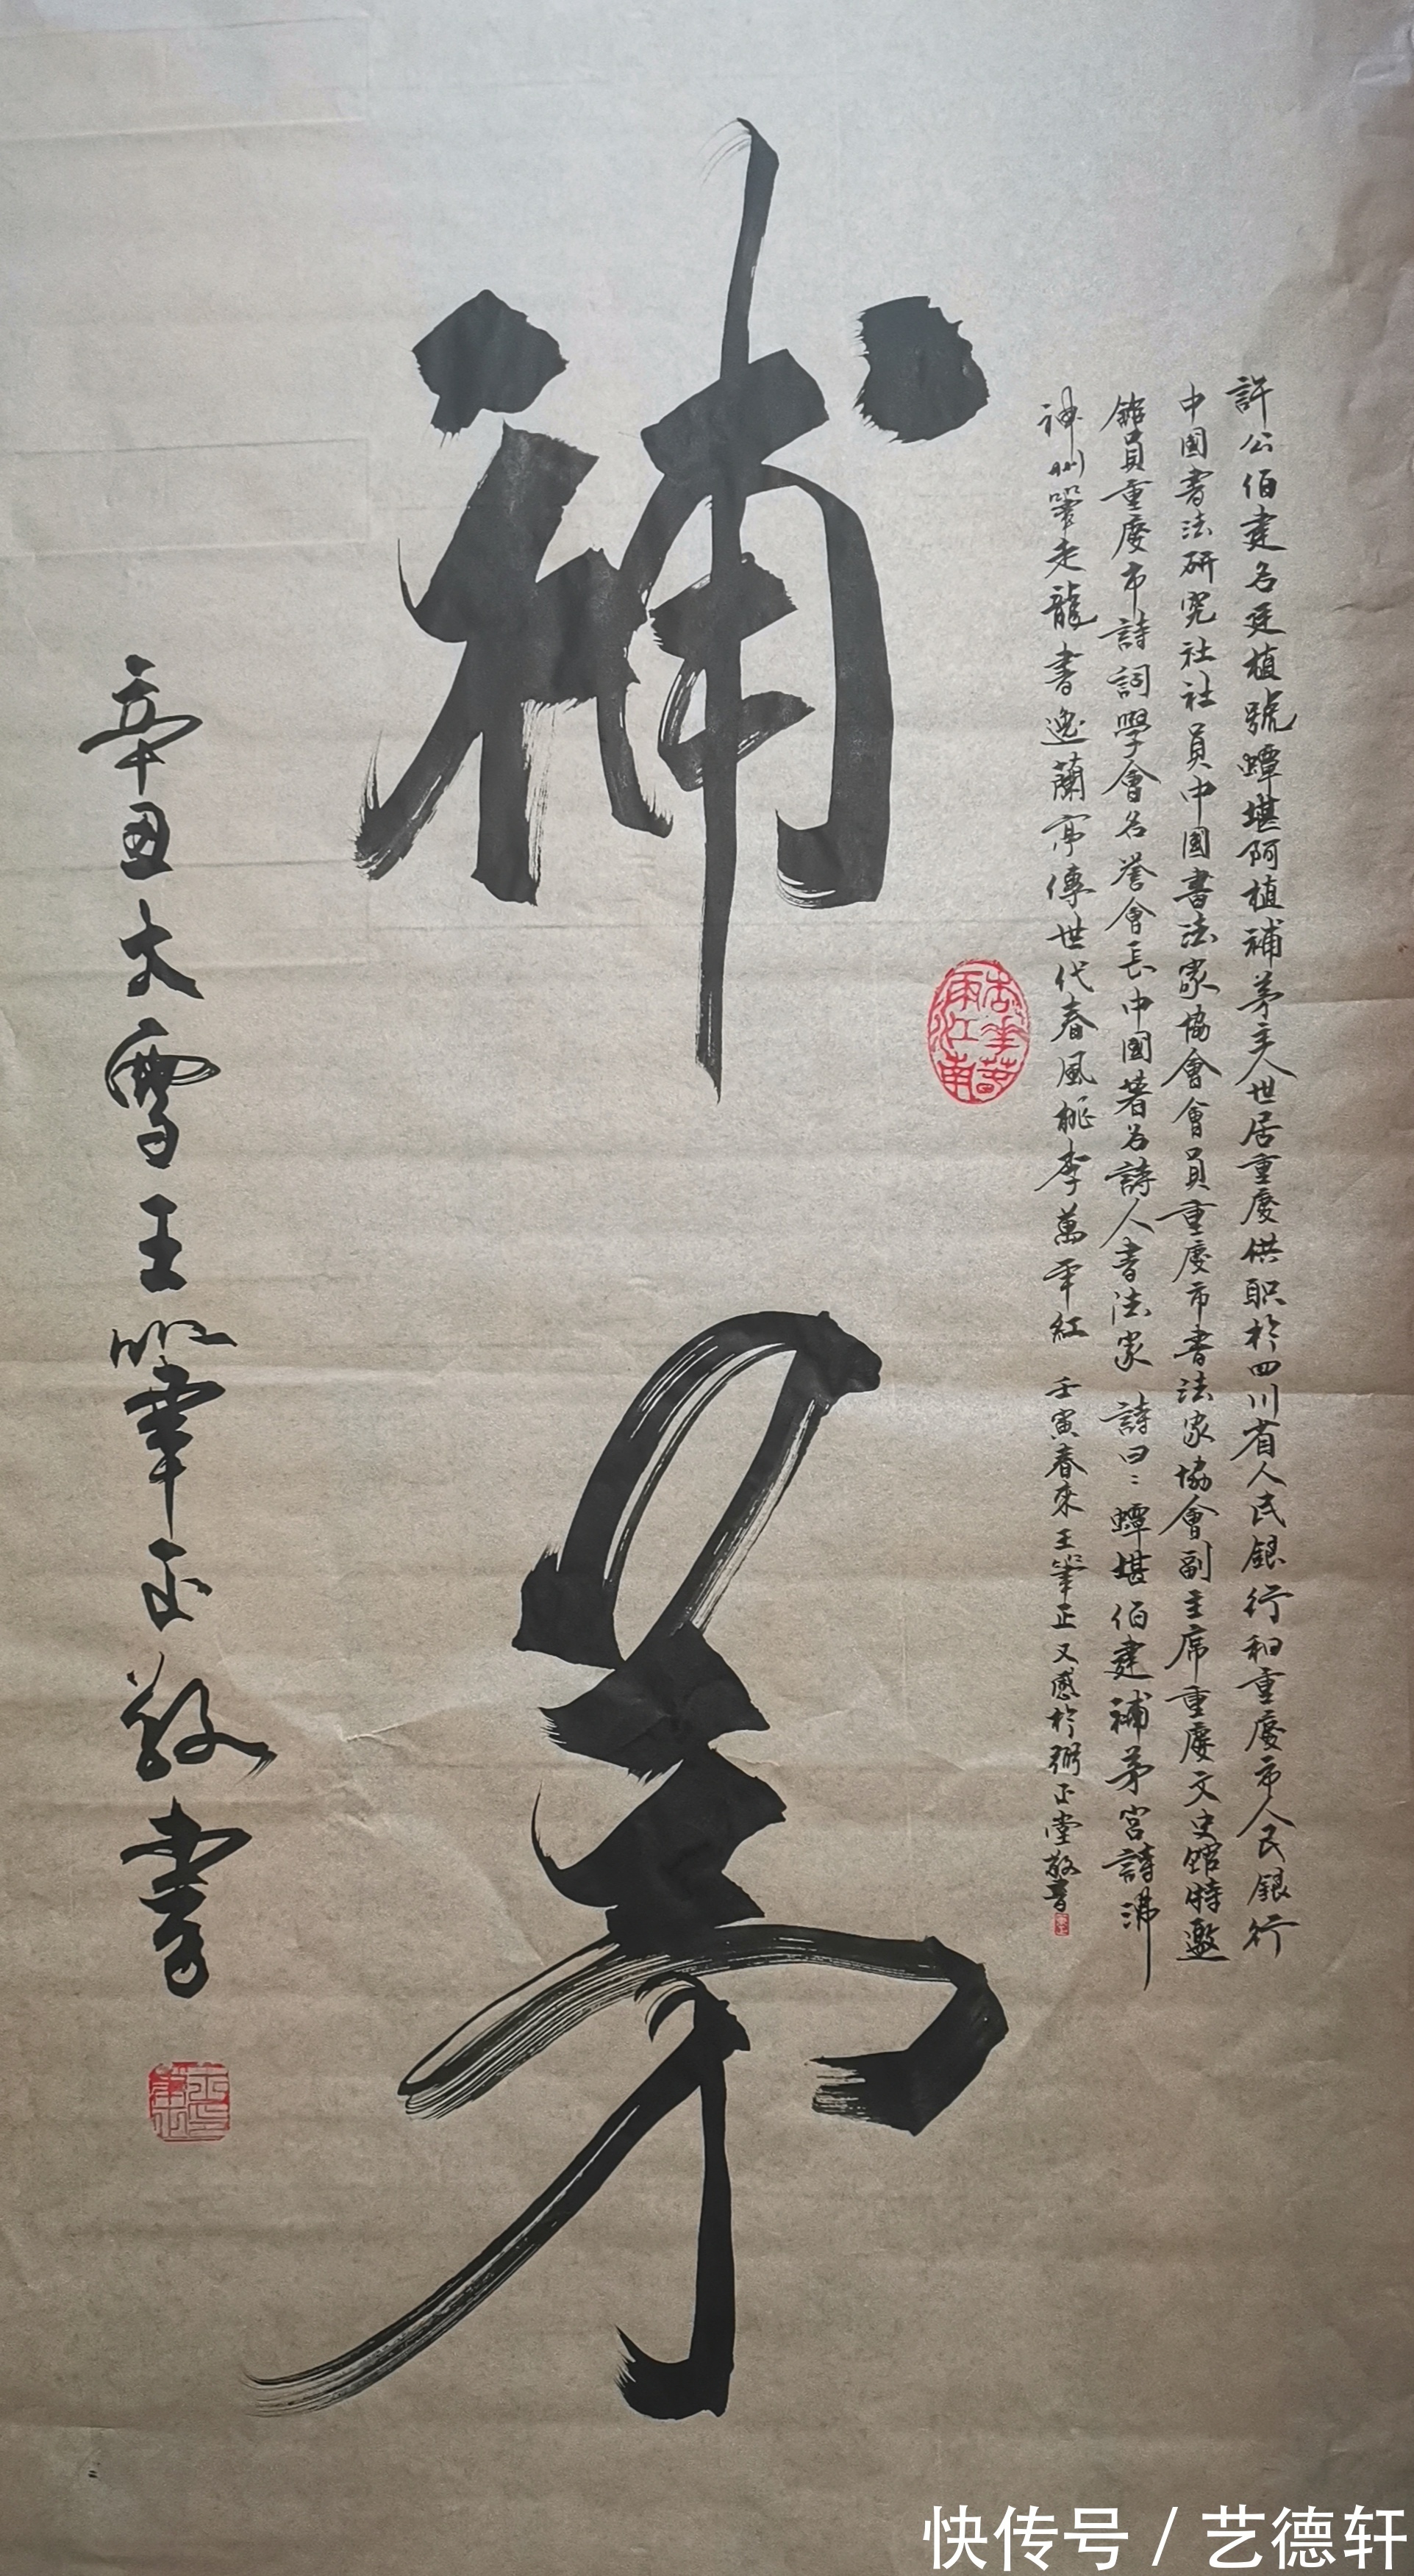 補茅
許公伯建名廷植號蟫堪阿植補茅主人世居重慶供职於四川省人民銀行和重慶市人民銀行
中國書法研究社社員中國書法家協會會員重慶市書法家協會副主席重慶文史館時邀
館員重慶市詩詞學會名譽會長中國著名詩人書法家 詩曰：蟫堪伯建補茅宮詩沸
神州筆走龍書逸蘭亭傳世代春風桃李萬年紅 壬寅春來王筆正又感於弼正堂敬書
杏華春雨江南
辛丑大雪王筆正敬書
快传号/艺德轩